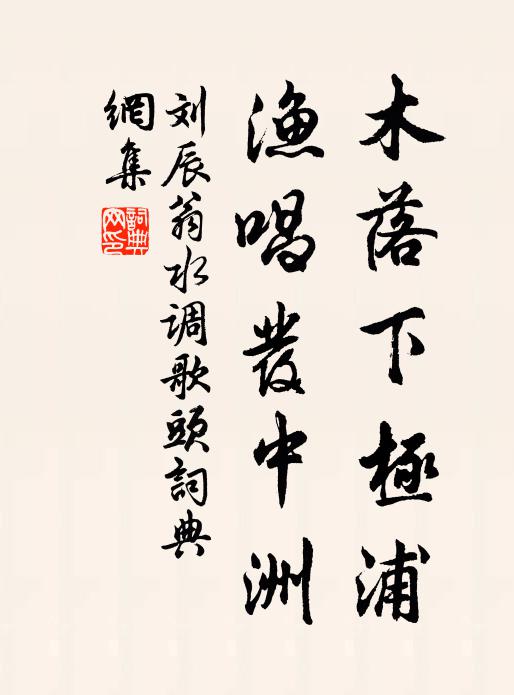 木落下極浦
漁唱發中洲
刘辰翁水调歌頭詞典
網集
詞典
网印